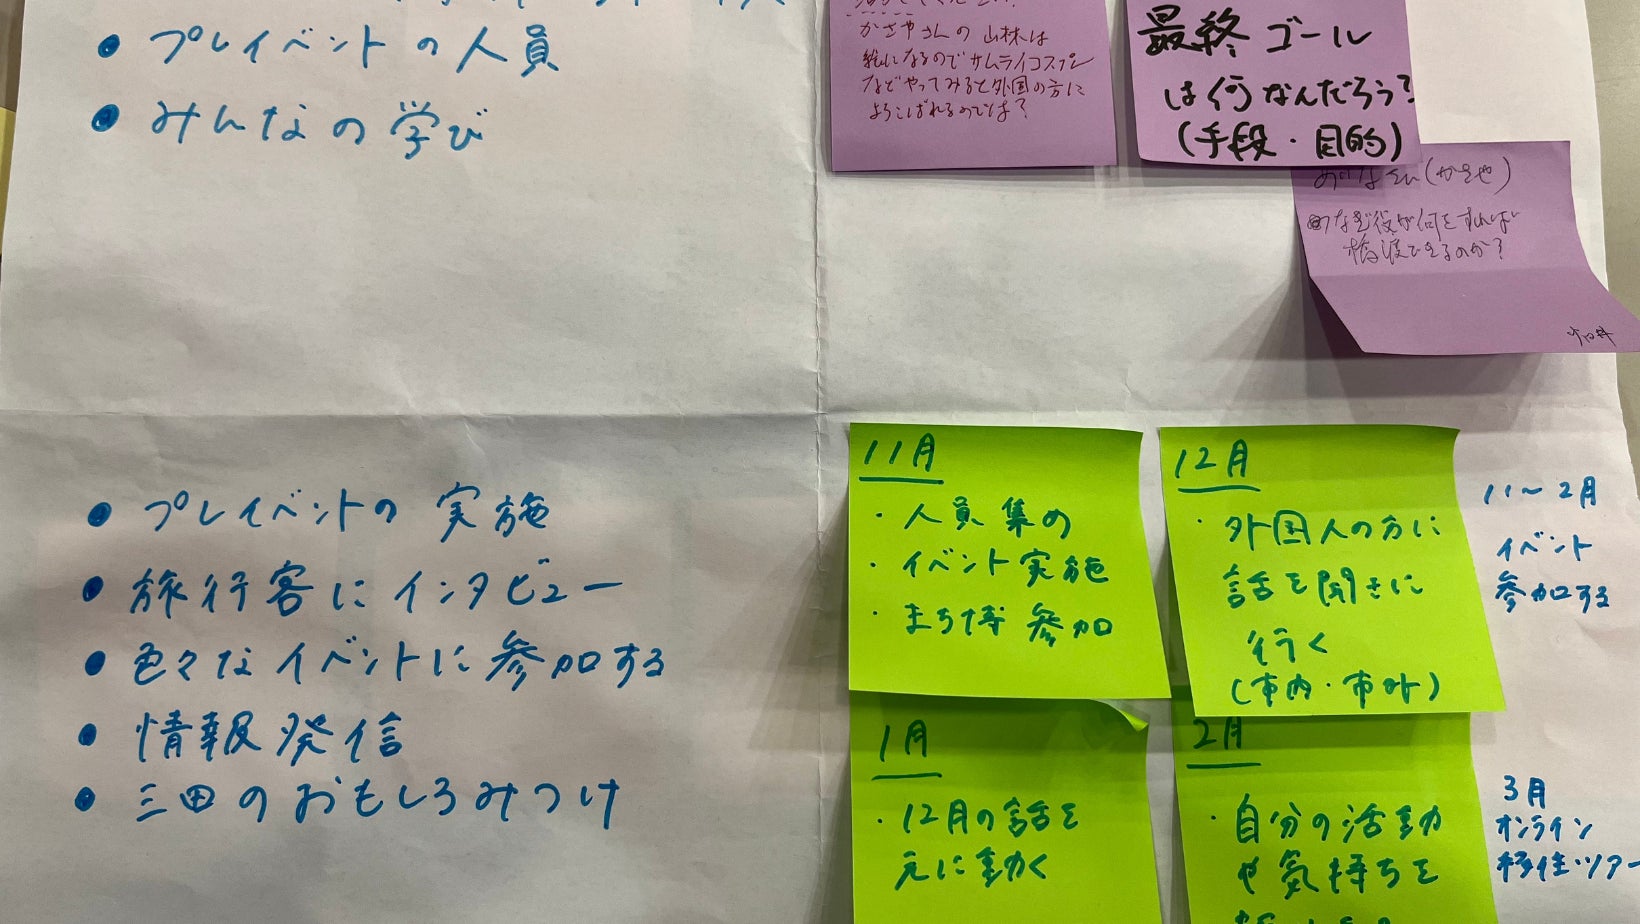 プレイベントの人員
みんなの学び
かさやさんの山林は
絵になるのでサムライコスプレ
などやってみると外国の方に
よろこばれるのでは？
最終ゴール
は何なんだろう？
(手段・目的)
(かさや)
なぜ役が何をすれば
橋渡できるのか？
プレイベントの実施
旅行客にインタビュー
色々なイベントに参加する
情報発信
三田のおもしろみつけ
11月
・人員集め
・イベント実施
・まち博参加
12月
・外国人の方に
話を聞きに
行く
(市内・市外)
11〜2月
イベント
参加する
1月
・12月の話を
元に動く
2月
・自分の活動
や気持ちを
3月
オンライン
移住ツアー